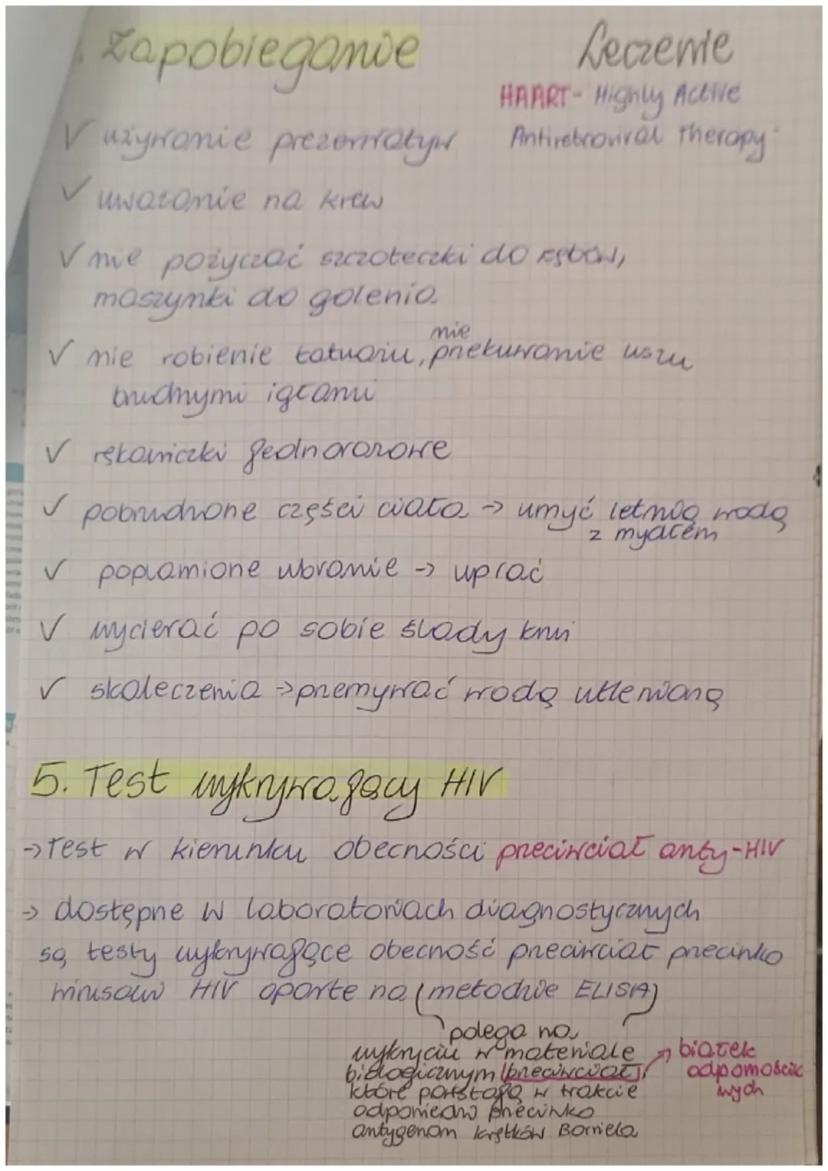 Zapobieganie
Leczenie
HAART - Highly Active
Antiretroviral Therapy
√ używanie prezerwatyw
√ uważanie na krew
√ nie pożyczać szczoteczki do zębów,
maszynki do golenia
√ nie robienie tatuażu, nie przekuwanie uszu
brudnymi igłami
√ rękawiczki jednorazowe
√ pobrudzone części ciała -> umyć letnią wodą
z mydłem
√ poplamione ubranie -> uprać
√ wycierać po sobie ślady krwi
√ skaleczenia -> przemywać wodą utlenioną
5. Test wykrywający HIV
-> Test w kierunku obecności przeciwciał anty-HIV
-> dostępne w laboratoriach diagnostycznych
są testy wykrywające obecność przeciwciał przeciwko
wirusowi HIV oparte na (metodzie ELISIA)
polega na
wykryciu w materiale
biologicznym (przeciwciał), -> białek
odpornościo
wych
które powstają w trakcie
odpowiedzi przeciwko
antygenom krętków Borriela